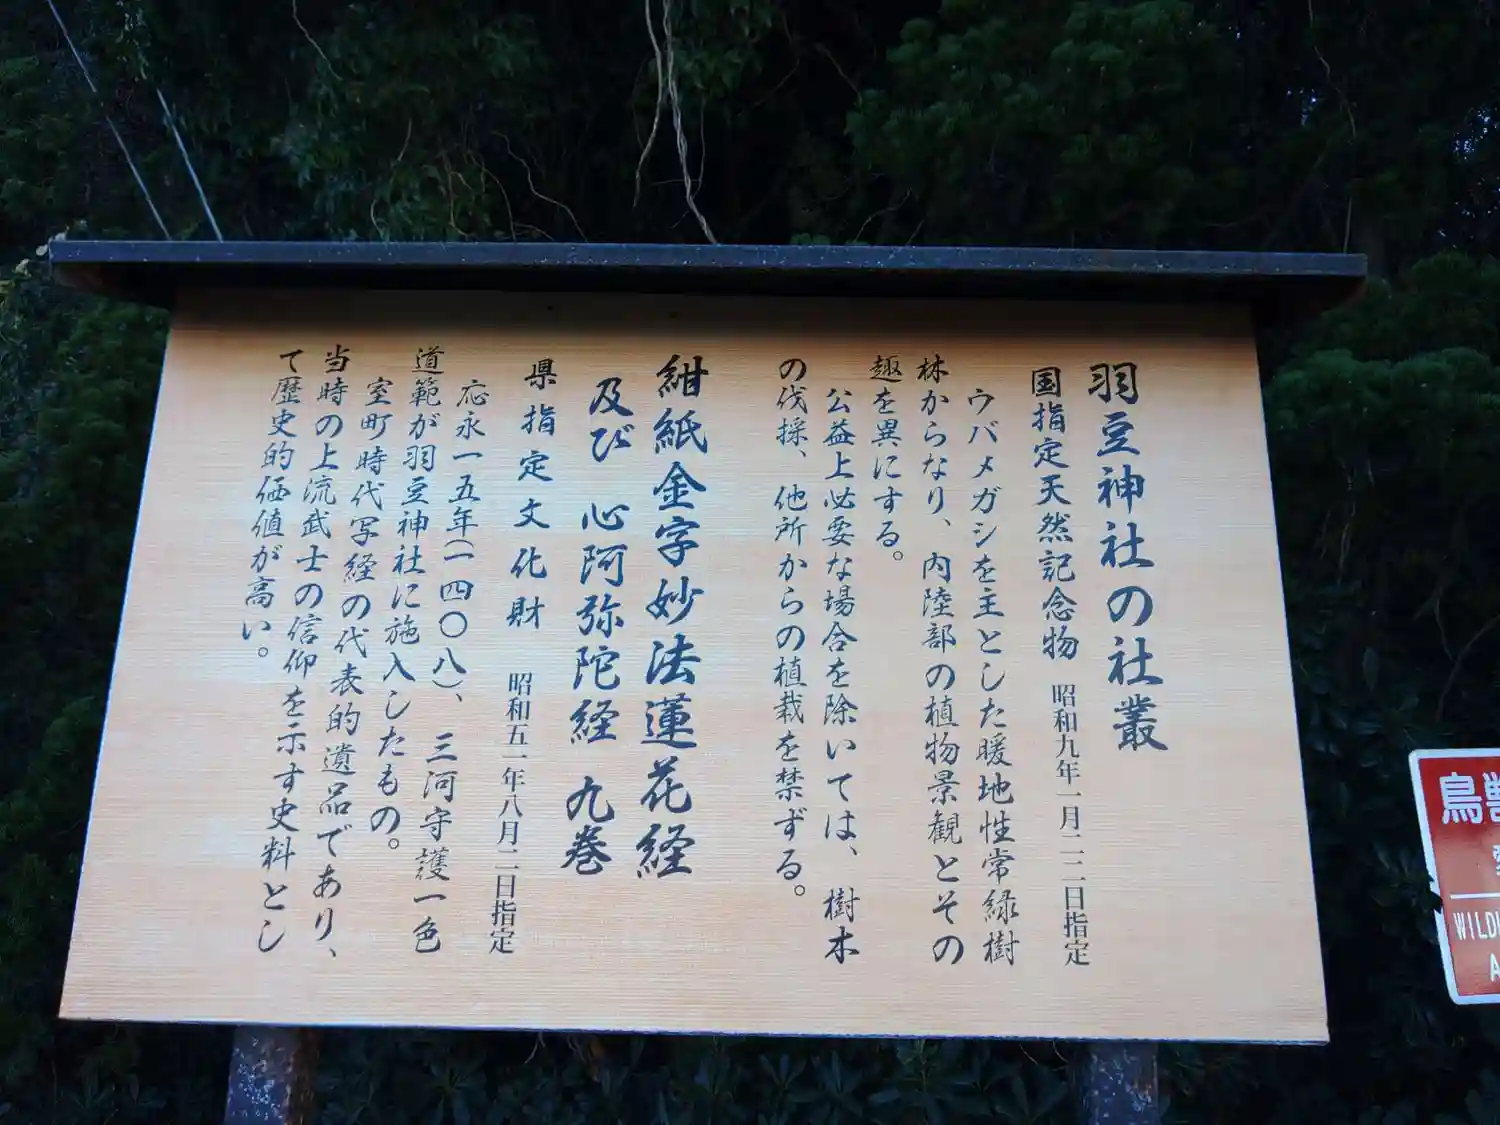 羽豆神社の社叢
国指定天然記念物 昭和九年一月二二日指定
ウバメガシを主とした暖地性常緑樹
林からなり、内陸部の植物景観とその
趣を異にする。
公益上必要な場合を除いては、樹木
の伐採、他所からの植栽を禁ずる。
紺紙金字妙法蓮花経
及び 心阿弥陀経 九巻
県指定文化財 昭和五一年八月二日指定
応永一五年(一四〇八)、三河守護一色
道範が羽豆神社に施入したもの。
室町時代写経の代表的遺品であり、
当時の上流武士の信仰を示す史料とし
て歴史的価値が高い。
鳥獣
WILD
A